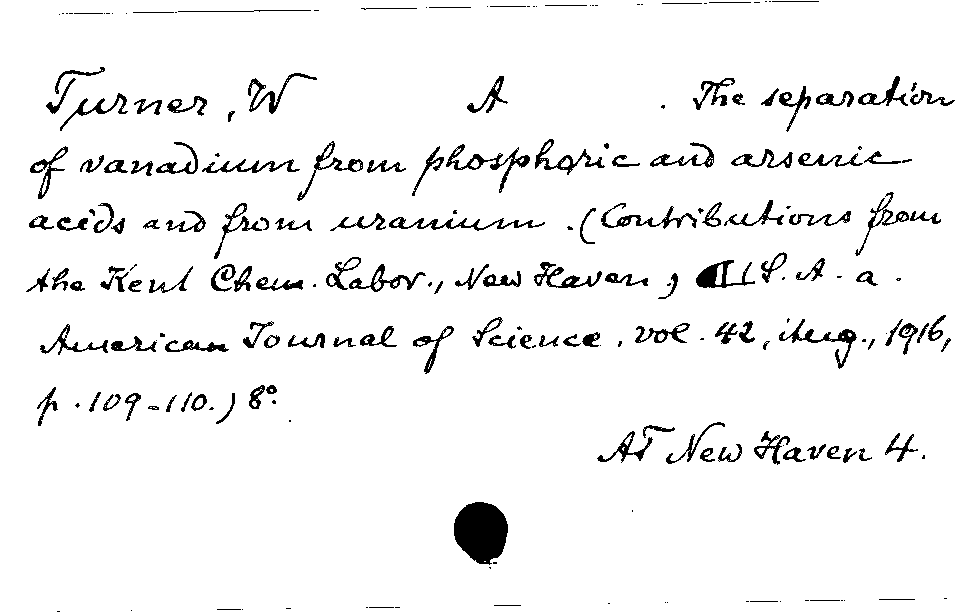 Turner, W A . The separation
of vanadium from phosphoric and arsenic
acids and from uranium. (Contributions from
the Kent Chem. Labor., New Haven, U.S.A. a.
American Journal of Science. vol. 42, Aug., 1916,
p. 109-110.) 8°.
AT New Haven 4.